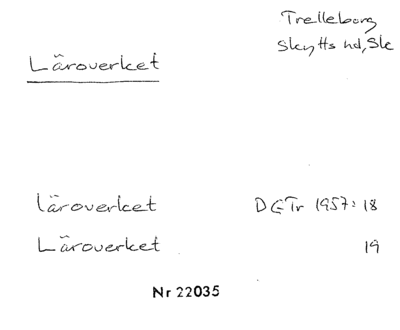 Trelleborg
Skytts hd, Sk
Läroverket
läroverket DGTr 1957:18
Läroverket 19
Nr 22035